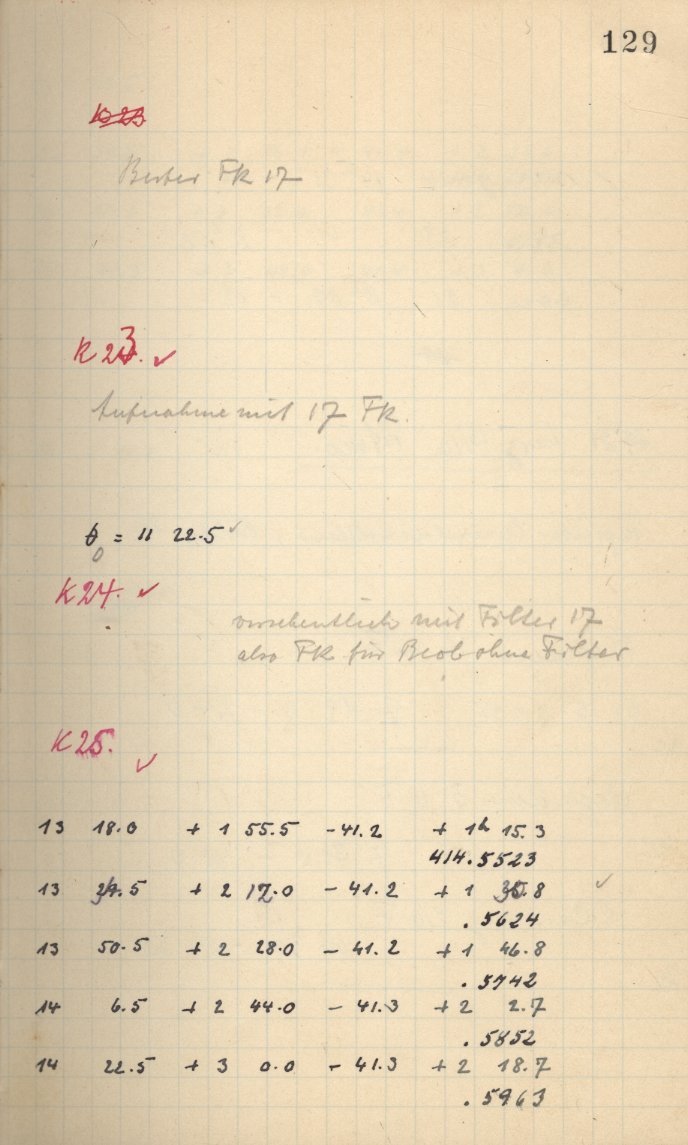 129
K23
FK 17
K 23. ✓
Aufnahme mit 17 FK.
= 11 22.5 ✓
0
K24. ✓
versehentlich mit Filter 17
also FK für Beob ohne Filter
K25. ✓
13 18.0 + 1 55.5 - 41.2 + 1h 15.3
414.5523
13 34.5 + 2 12.0 - 41.2 + 1 30.8 ✓
.5624
13 50.5 + 2 28.0 - 41.2 + 1 46.8
.5742
14 6.5 + 2 44.0 - 41.3 + 2 2.7
.5852
14 22.5 + 3 0.0 - 41.3 + 2 18.7
.5963